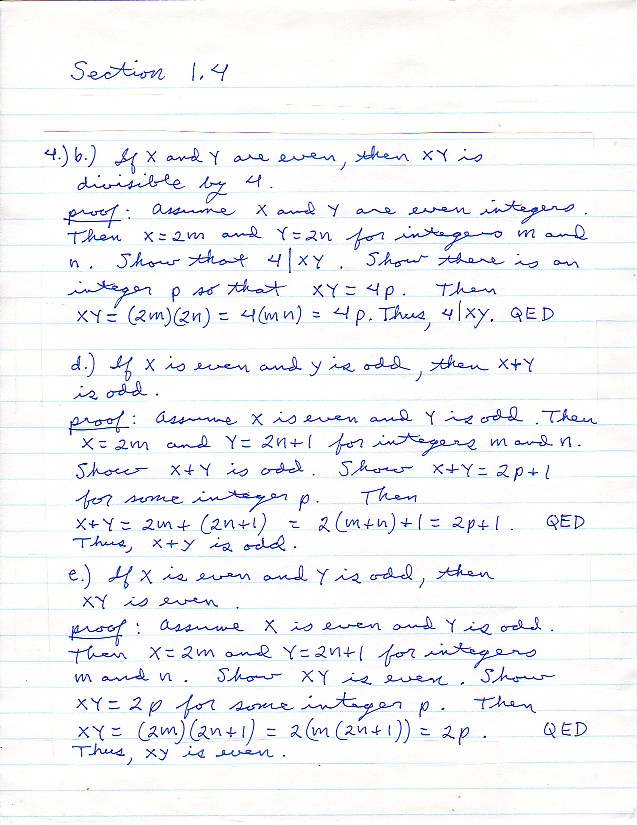 Section 1.4
4.) b.) If X and Y are even, then XY is
divisible by 4.
proof: Assume X and Y are even integers.
Then X=2m and Y=2n for integers m and
n. Show that 4|XY. Show there is an
integer p so that XY=4p. Then
XY=(2m)(2n) = 4(mn) = 4p. Thus, 4|XY. QED
d.) If X is even and Y is odd, then X+Y
is odd.
proof: Assume X is even and Y is odd. Then
X=2m and Y=2n+1 for integers m and n.
Show X+Y is odd. Show X+Y=2p+1
for some integer p. Then
X+Y=2m+(2n+1) = 2(m+n)+1=2p+1. QED
Thus, X+Y is odd.
e.) If X is even and Y is odd, then
XY is even.
proof: Assume X is even and Y is odd.
Then X=2m and Y=2n+1 for integers
m and n. Show XY is even. Show
XY=2p for some integer p. Then
XY=(2m)(2n+1) = 2(m(2n+1)) = 2p. QED
Thus, XY is even.